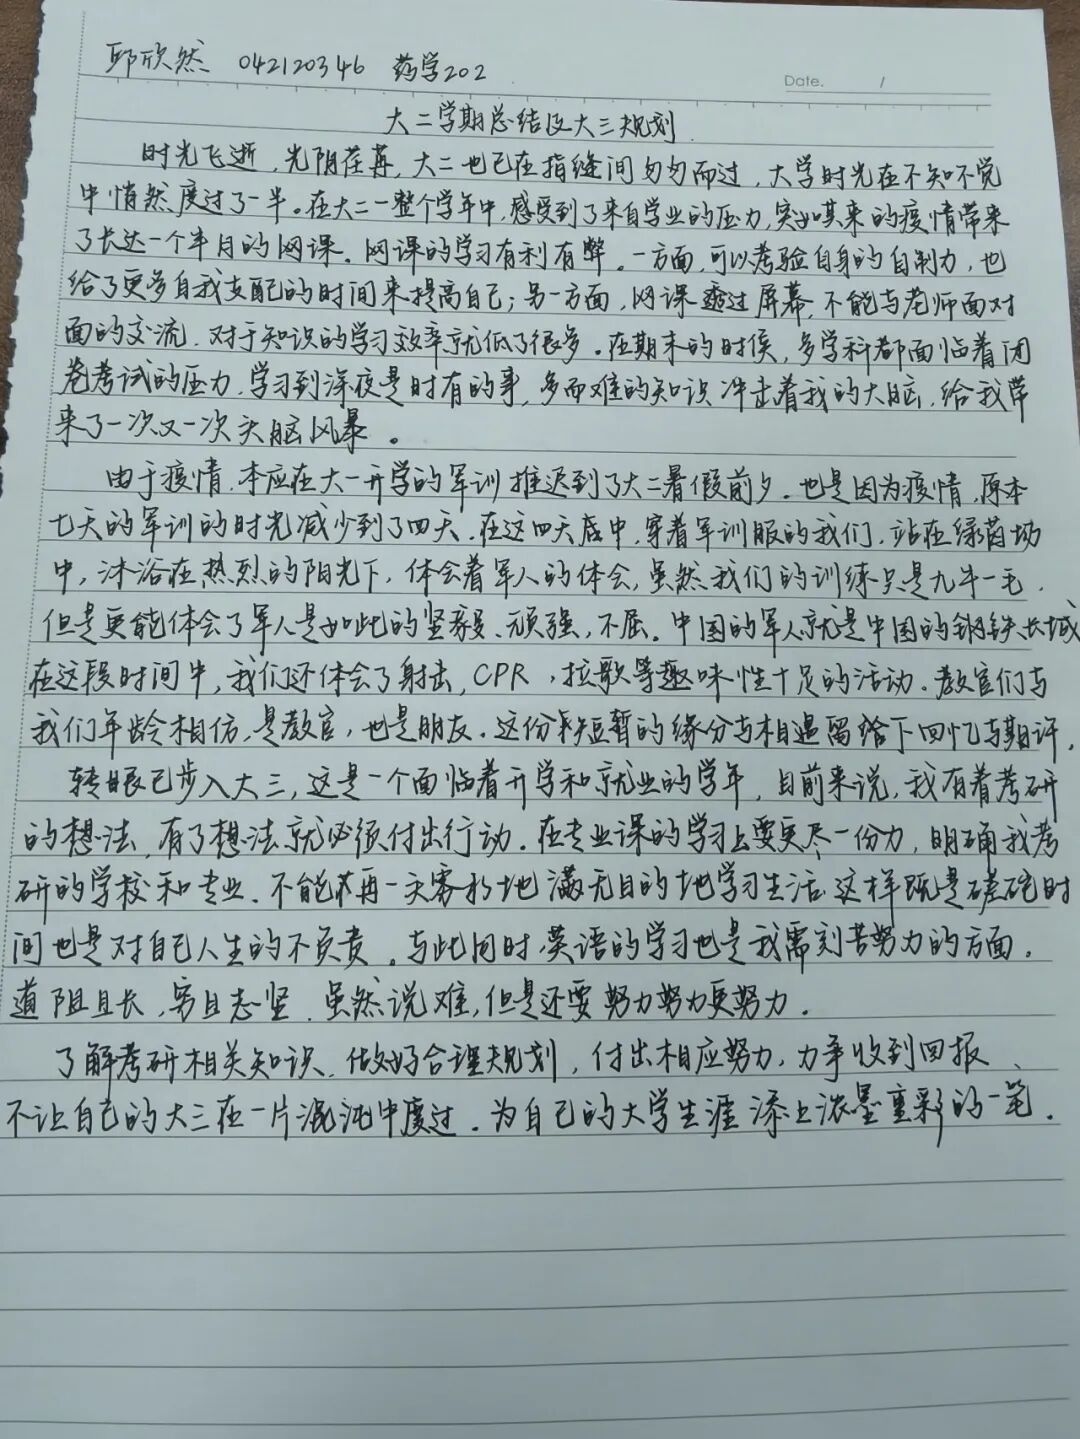 邱欣然 042120346 药学202
Date. /
大二学期总结及大三规划
时光飞逝，光阴荏苒，大二也已在指缝间匆匆而过，大学时光在不知不觉
中悄然度过了一半。在大二一整个学年中，感受到了来自学业的压力，突如其来的疫情带来
了长达一个半月的网课。网课的学习有利有弊。一方面，可以考验自身的自制力，也
给了更多自我支配的时间来提高自己；另一方面，网课透过屏幕，不能与老师面对
面的交流，对于知识的学习效率就低了很多。在期末的时候，多学科都面临着闭
卷考试的压力，学习到深夜是时有的事，多而难的知识冲击着我的大脑，给我带
来了一次又一次头脑风暴。
由于疫情，本应在大一开学的军训推迟到了大二暑假前夕。也是因为疫情，原本
七天的军训的时光减少到了四天。在这四天底中，穿着军训服的我们，站在绿茵场
中，沐浴在热烈的阳光下，体会着军人的体会，虽然我们的训练只是九牛一毛，
但是更能体会了军人是如此的坚毅、顽强，不屈。中国的军人就是中国的钢铁长城
在这段时间中，我们还体会了射击，CPR，拉歌等趣味性十足的活动。教官们与
我们年龄相仿，是教官，也是朋友。这份短暂的缘分与相遇留给下回忆与期许，
转眼已步入大三，这是一个面临着升学和就业的学年，目前来说，我有着考研
的想法，有了想法就必须付出行动。在专业课的学习上要更尽一份力，明确我考
研的学校和专业，不能再一天零打地满无目的地学习生活，这样既是蹉跎时
间也是对自己人生的不负责。与此同时，英语的学习也是我需刻苦努力的方面。
道阻且长，穷且志坚，虽然说难，但是还要努力努力更努力。
了解考研相关知识，做好合理规划，付出相应努力，力争收到回报，
不让自己的大三在一片混沌中度过。为自己的大学生涯添上浓墨重彩的一笔。